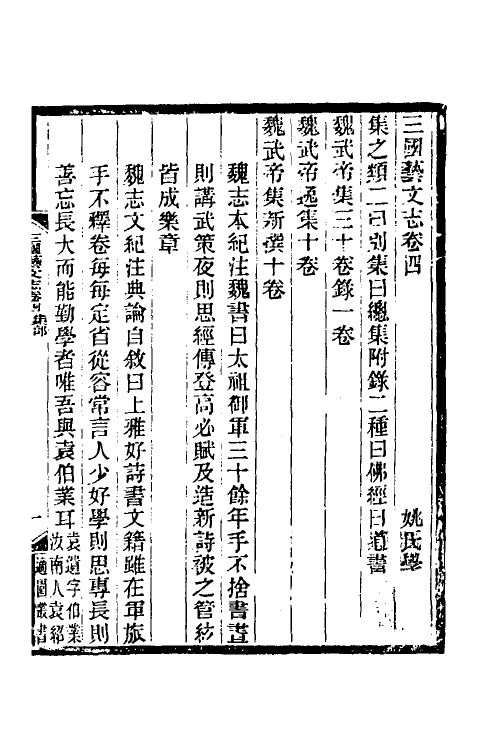 三國藝文志卷四
姚氏學
集之類二曰別集曰總集附錄二種曰佛經曰道書
魏武帝集三十卷錄一卷
魏武帝逸集十卷
魏武帝集新撰十卷
魏志本紀注魏書曰太祖御軍三十餘年手不捨書晝
則講武策夜則思經傳登高必賦及造新詩被之管絃
皆成樂章
魏志文紀注典論自敘曰上雅好詩書文籍雖在軍旅
手不釋卷每每定省從容常言人少好學則思專長則
善忘長大而能勤學者唯吾與袁伯業耳
袁遺字伯業
汝南人袁紹
三國藝文志卷四集部
一
適園叢書